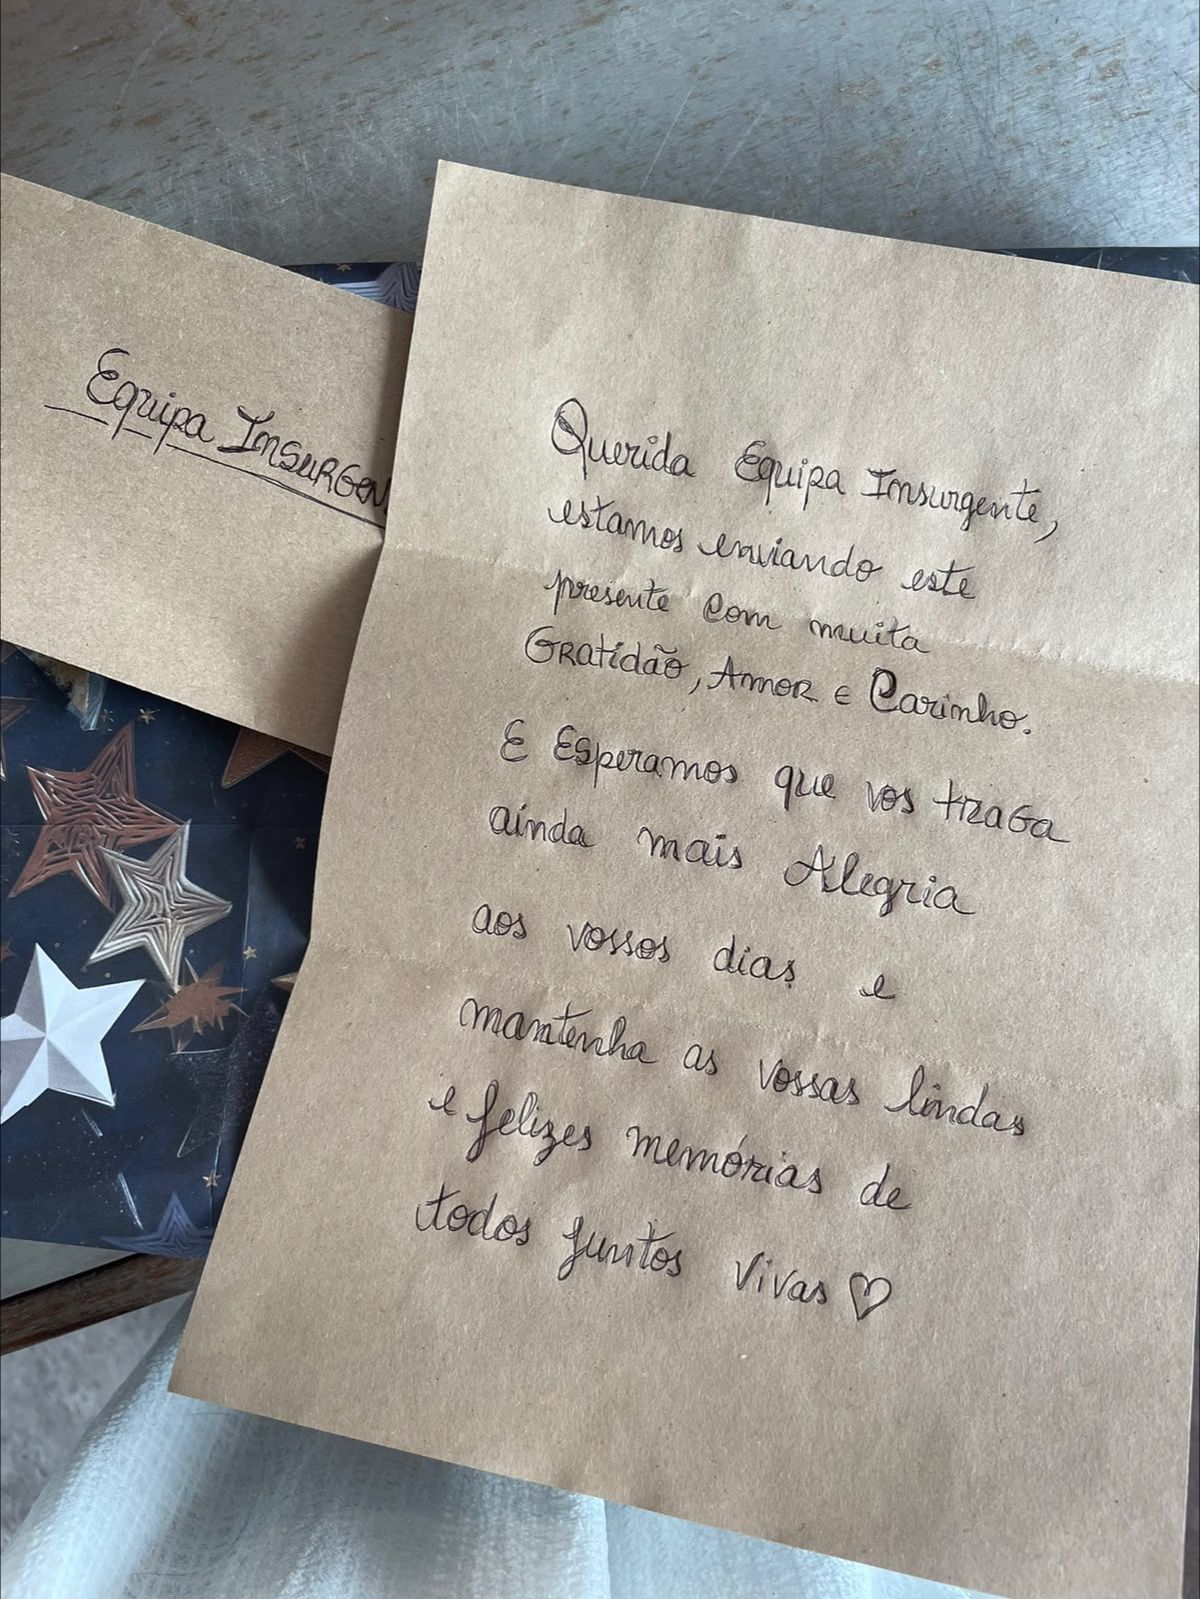 Equipa INSURGEN
Querida Equipa Insurgente,
estamos enviando este
presente com muita
GRatidão, Amor e Carinho.
E Esperamos que vos traga
ainda mais Alegria
aos vossos dias e
mantenha as vossas lindas
e felizes memórias de
todos juntos vivas ♡